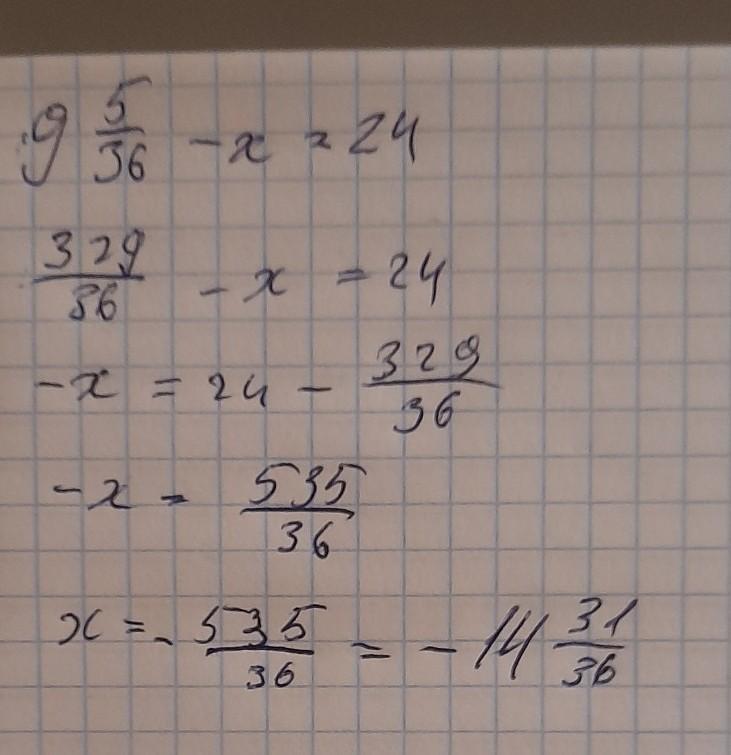 9 5/36 - x = 24
329/36 - x = 24
-x = 24 - 329/36
-x = 535/36
x = - 535/36 = - 14 31/36